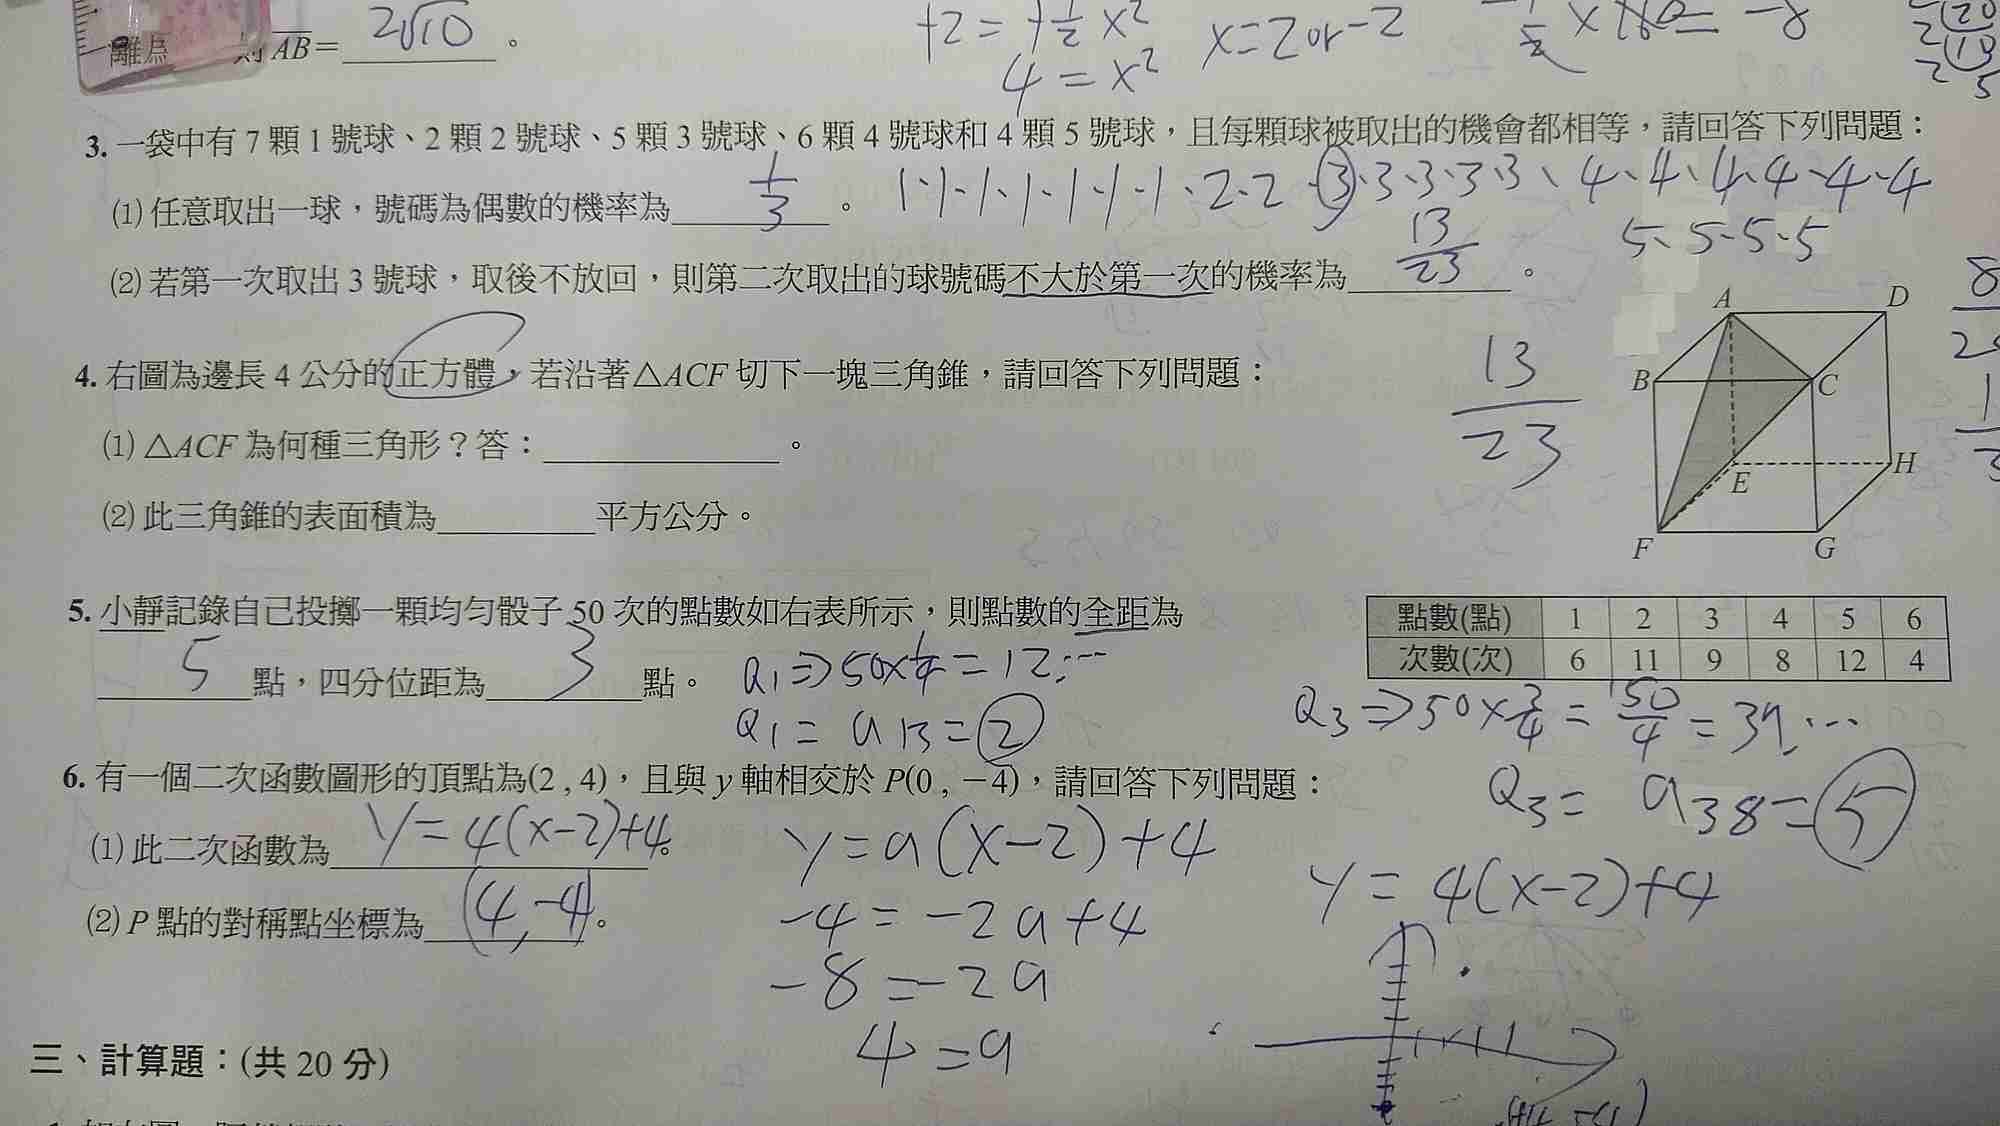 則 AB = 2√10 。
+2 = +1/2 x²
4 = x²
x = 2 or -2
3. 一袋中有 7 顆 1 號球、2 顆 2 號球、5 顆 3 號球、6 顆 4 號球和 4 顆 5 號球，且每顆球被取出的機會都相等，請回答下列問題：
(1) 任意取出一球，號碼為偶數的機率為 1/3 。
1、1、1、1、1、1、1、2、2、3、3、3、3、3、4、4、4、4、4、4
5、5、5、5
(2) 若第一次取出 3 號球，取後不放回，則第二次取出的球號碼不大於第一次的機率為 13/23 。
13/23
4. 右圖為邊長 4 公分的正方體，若沿著△ACF 切下一塊三角錐，請回答下列問題：
(1) △ACF 為何種三角形？答： 。
(2) 此三角錐的表面積為 平方公分。
A D
B C
E H
F G
5. 小靜記錄自己投擲一顆均勻骰子 50 次的點數如右表所示，則點數的全距為
5 點，四分位距為 3 點。
點數(點) 1 2 3 4 5 6
次數(次) 6 11 9 8 12 4
Q1 ⇒ 50 × 1/4 = 12…
Q1 = a13 = 2
Q3 ⇒ 50 × 3/4 = 150/4 = 39…
Q3 = a38 = 5
6. 有一個二次函數圖形的頂點為(2 , 4)，且與 y 軸相交於 P(0 , －4)，請回答下列問題：
(1) 此二次函數為 y = 4(x-2)+4。
(2) P 點的對稱點坐標為 (4, -4) 。
y = a(x-2)+4
-4 = -2a+4
-8 = -2a
4 = a
y = 4(x-2)+4
三、計算題：(共 20 分)